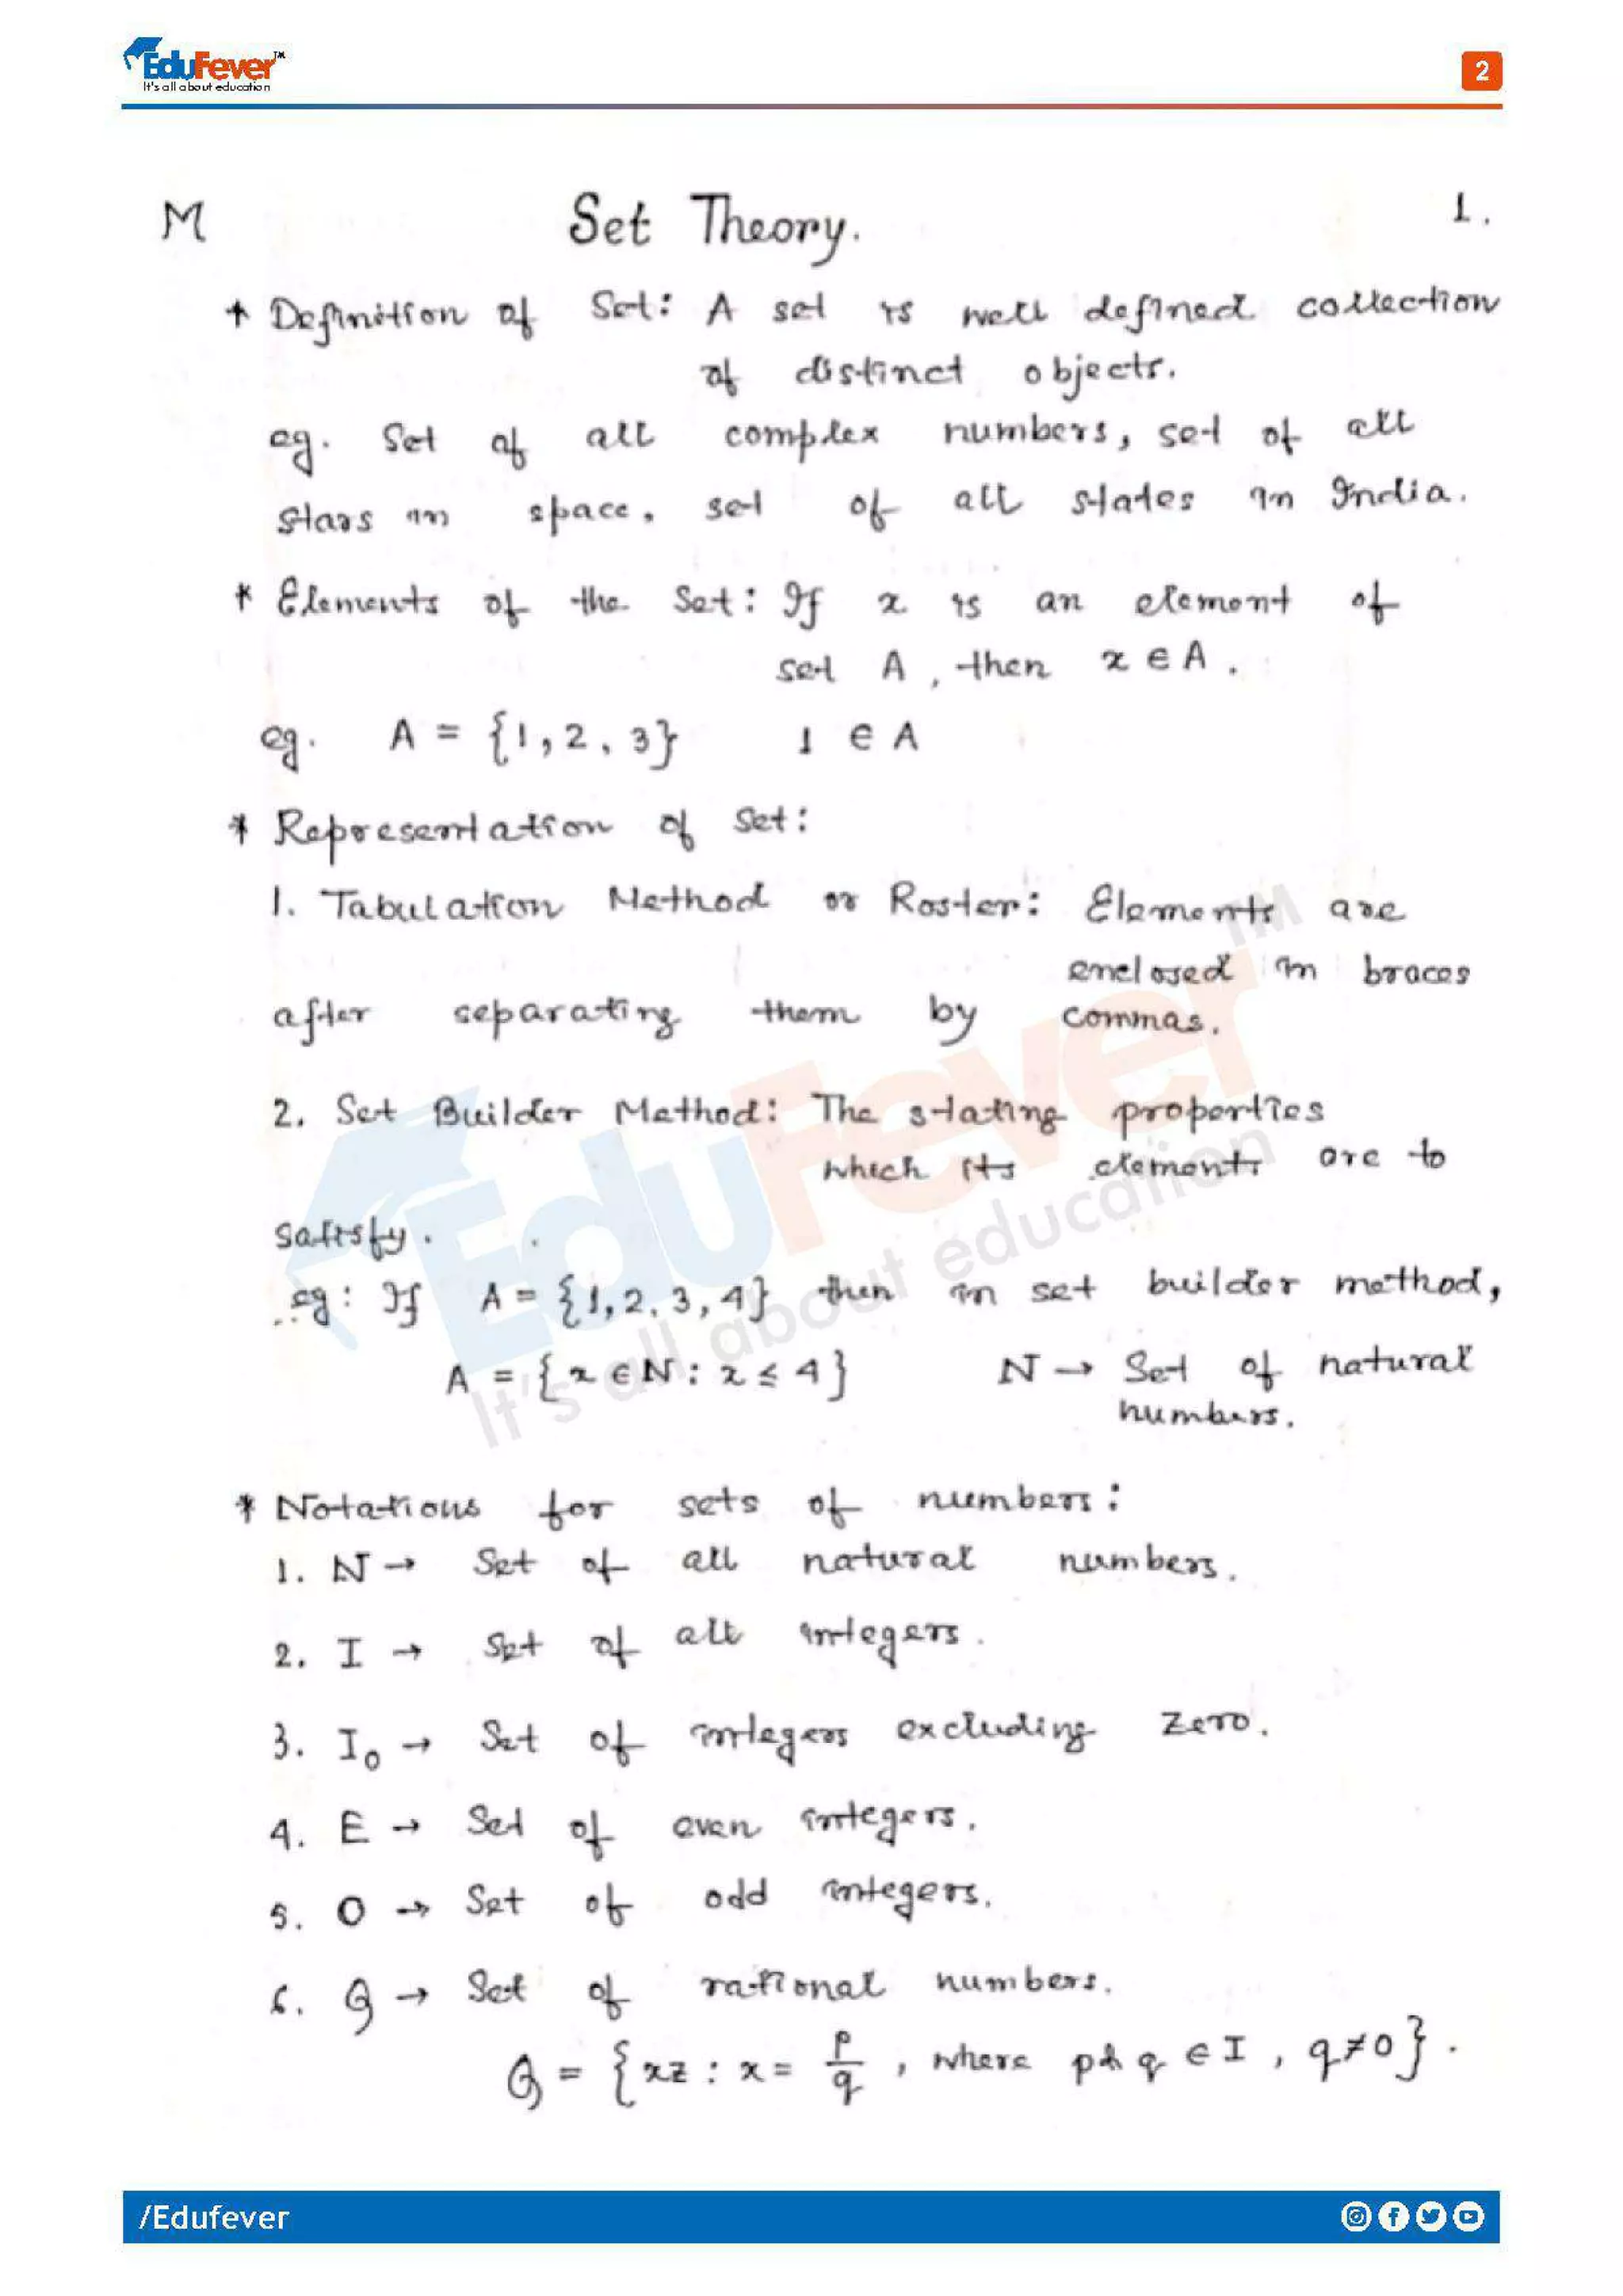 EduFever™
It's all about education
2
M Set Theory. 1.
* Definition of Set: A set is well defined collection
of distinct objects.
eg. Set of all complex numbers, set of all
stars in space, set of all states in India.
* Elements of the Set: If x is an element of
set A, then x ∈ A.
eg. A = {1, 2, 3} 1 ∈ A
* Representation of Set:
1. Tabulation Method or Roster: Elements are
enclosed in braces
after separating them by commas.
2. Set Builder Method: The stating properties
which its elements are to
satisfy.
eg: If A = {1, 2, 3, 4} then in set builder method,
A = {x ∈ N : x ≤ 4} N → Set of natural
numbers.
* Notations for sets of numbers:
1. N → Set of all natural numbers.
2. I → Set of all integers.
3. I₀ → Set of integers excluding zero.
4. E → Set of even integers.
5. O → Set of odd integers.
6. Q → Set of rational numbers.
Q = {xz : x = p/q, where p & q ∈ I, q ≠ 0}.
EduFever™
It's all about education
/Edufever